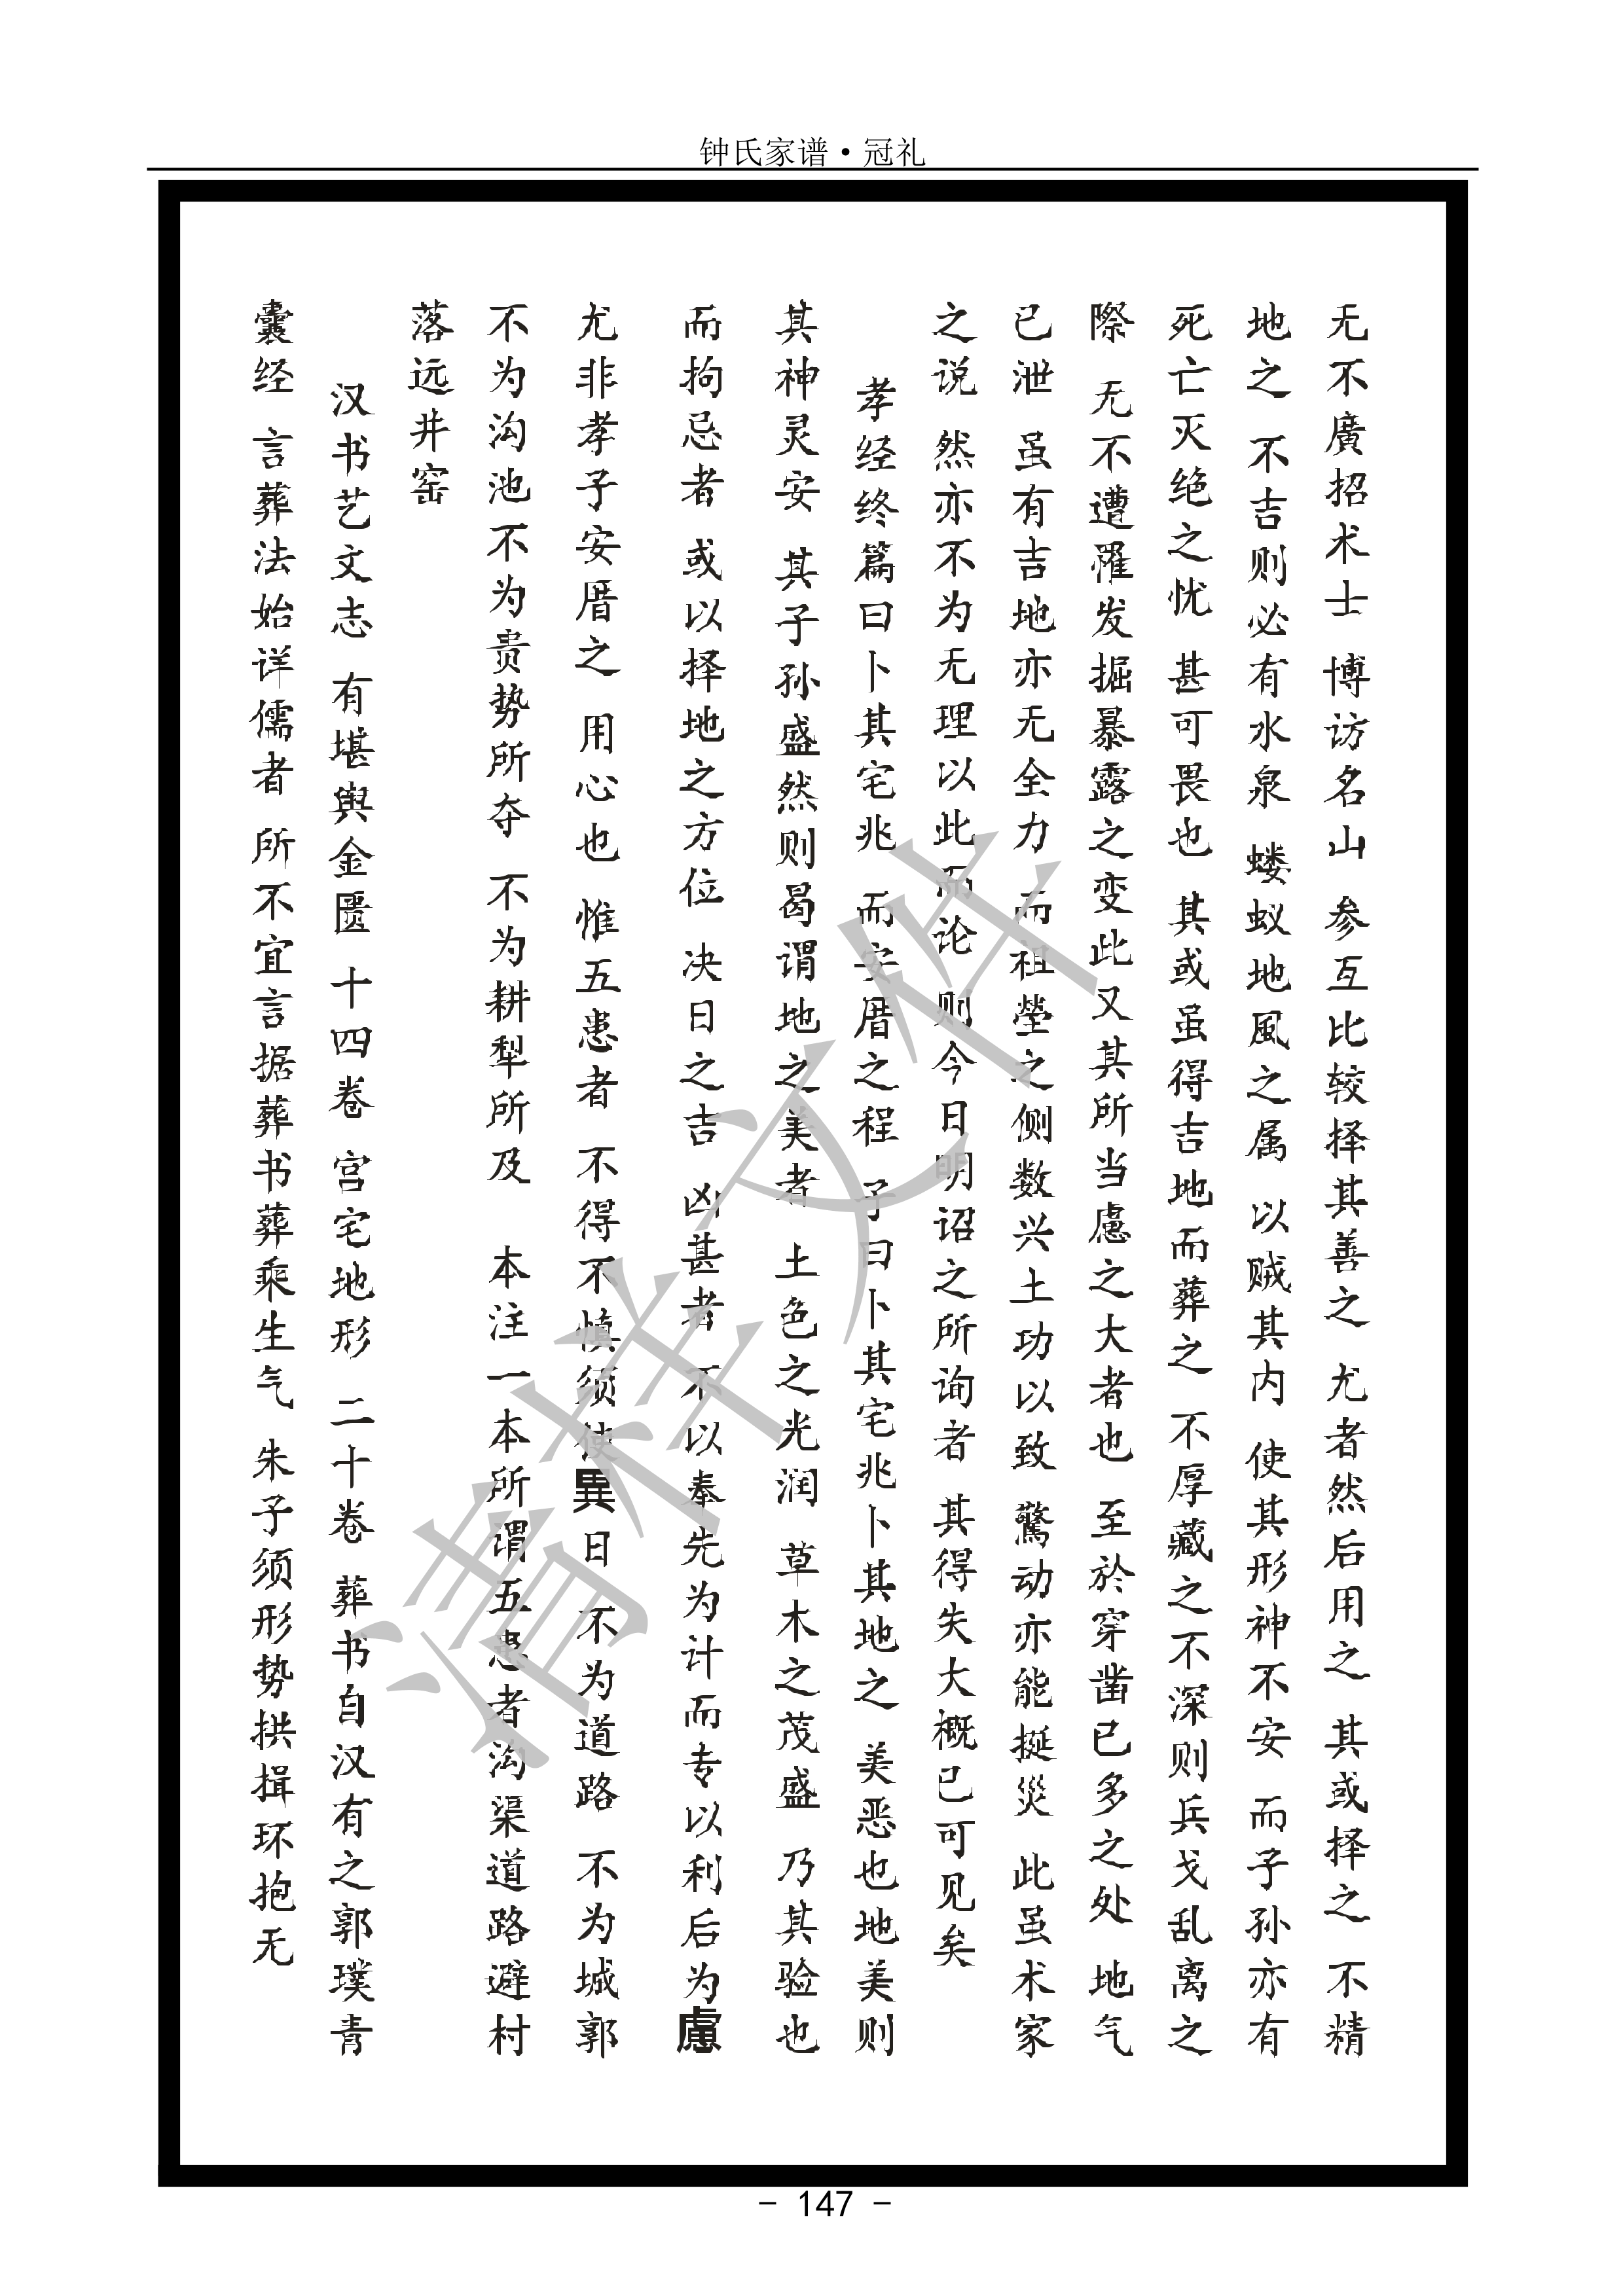 钟氏家谱·冠礼
无不廣招术士 博访名山 参互比较择其善之 尤者然后用之 其或择之 不精
地之 不吉则必有水泉 蝼蚁地風之属 以贼其内 使其形神不安 而子孙亦有
死亡灭绝之忧 甚可畏也 其或虽得吉地而葬之 不厚藏之不深则兵戈乱离之
際 无不遭罹发掘暴露之变此又其所当慮之大者也 至於穿凿已多之处 地气
已泄 虽有吉地亦无全力 而祖塋之侧数兴土功以致 驚动亦能挺災 此虽术家
之说 然亦不为无理以此而论 则今日明诏之所询者 其得失大概已可见矣
孝经终篇曰卜其宅兆 而安厝之程 子曰卜其宅兆卜其地之 美恶也地美则
其神灵安 其子孙盛然则曷谓地之美者 土色之光润 草木之茂盛 乃其验也
而拘忌者 或以择地之方位 决日之吉 凶甚者 不以奉先为计而专以利后为慮
尤非孝子安厝之 用心也 惟五患者 不得不慎须使異日不为道路 不为城郭
不为沟池不为贵势所夺 不为耕犁所及 本注一本所谓五患者沟渠道路避村
落远井窑
汉书艺文志 有堪舆金匮 十四卷 宫宅地形 二十卷 葬书自汉有之郭璞青
囊经 言葬法始详儒者 所不宜言据葬书葬乘生气 朱子须形势拱揖环抱无
- 147 -
清样文件